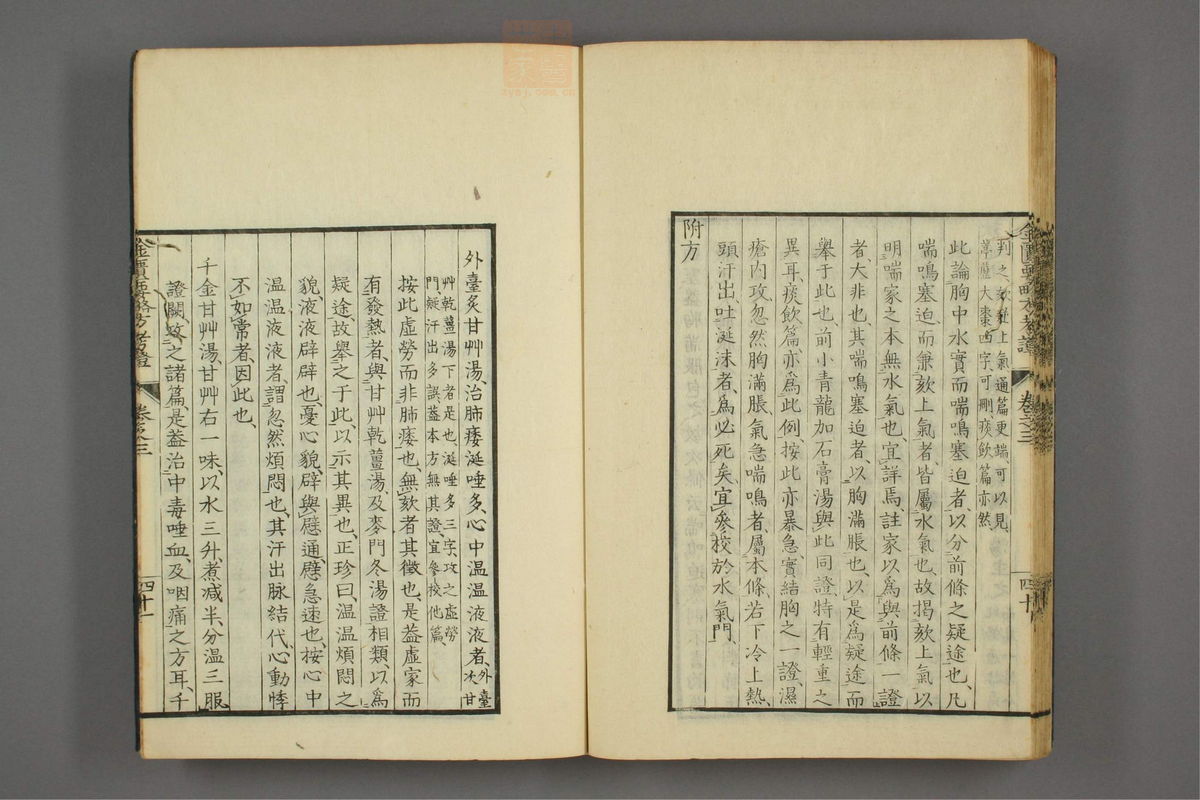 金匱要略方考證 卷之三 四十
判之欬逆上氣通篇更端可以見
葶藶大棗四字可刪、痰飲篇亦然、
此論胸中水實而喘鳴塞迫者、以分前條之疑途也、凡
喘鳴塞迫而兼欬上氣者皆屬水氣也、故揭欬上氣以
明喘家之本無水氣也、宜詳焉、註家以爲與前條一證
者、大非也、其喘鳴塞迫者、以胸滿脹也、以是爲疑途而
舉于此也、前小青龍加石膏湯、與此同證、特有輕重之
異耳、痰飲篇、亦爲此例、按此亦暴急、實結胸之一證、濕
瘡內攻、忽然胸滿脹、氣急喘鳴者、屬本條、若下冷上熱、
頭汗出、吐涎沫者、爲必死矣、宜參校於水氣門、
附方
外臺炙甘艸湯、治肺痿涎唾多、心中温温液液者、外臺次甘
艸乾薑湯下者是也、涎唾多三字、攻之虛勞
門、疑汗出多誤、蓋本方無其證、宜參校他篇、
按此虛勞而非肺痿也、無欬者其徵也、是蓋虛家而
有發熱者、與甘艸乾薑湯、及麥門冬湯證相類、以爲
疑途、故舉之于此、以示其異也、正珍曰、温温煩悶之
貌、液液辟辟也、憂心貌、辟與躄通、躄急速也、按心中
温温液液者、謂忽然煩悶也、其汗出脉結代、心動悸
不如常者、因此也、
千金甘艸湯、甘艸右一味、以水三升、煮減半、分温三服、
證闕、攷之諸篇、是蓋治中毒唾血、及咽痛之方耳、千
金匱要略方考證 卷之三 四十一